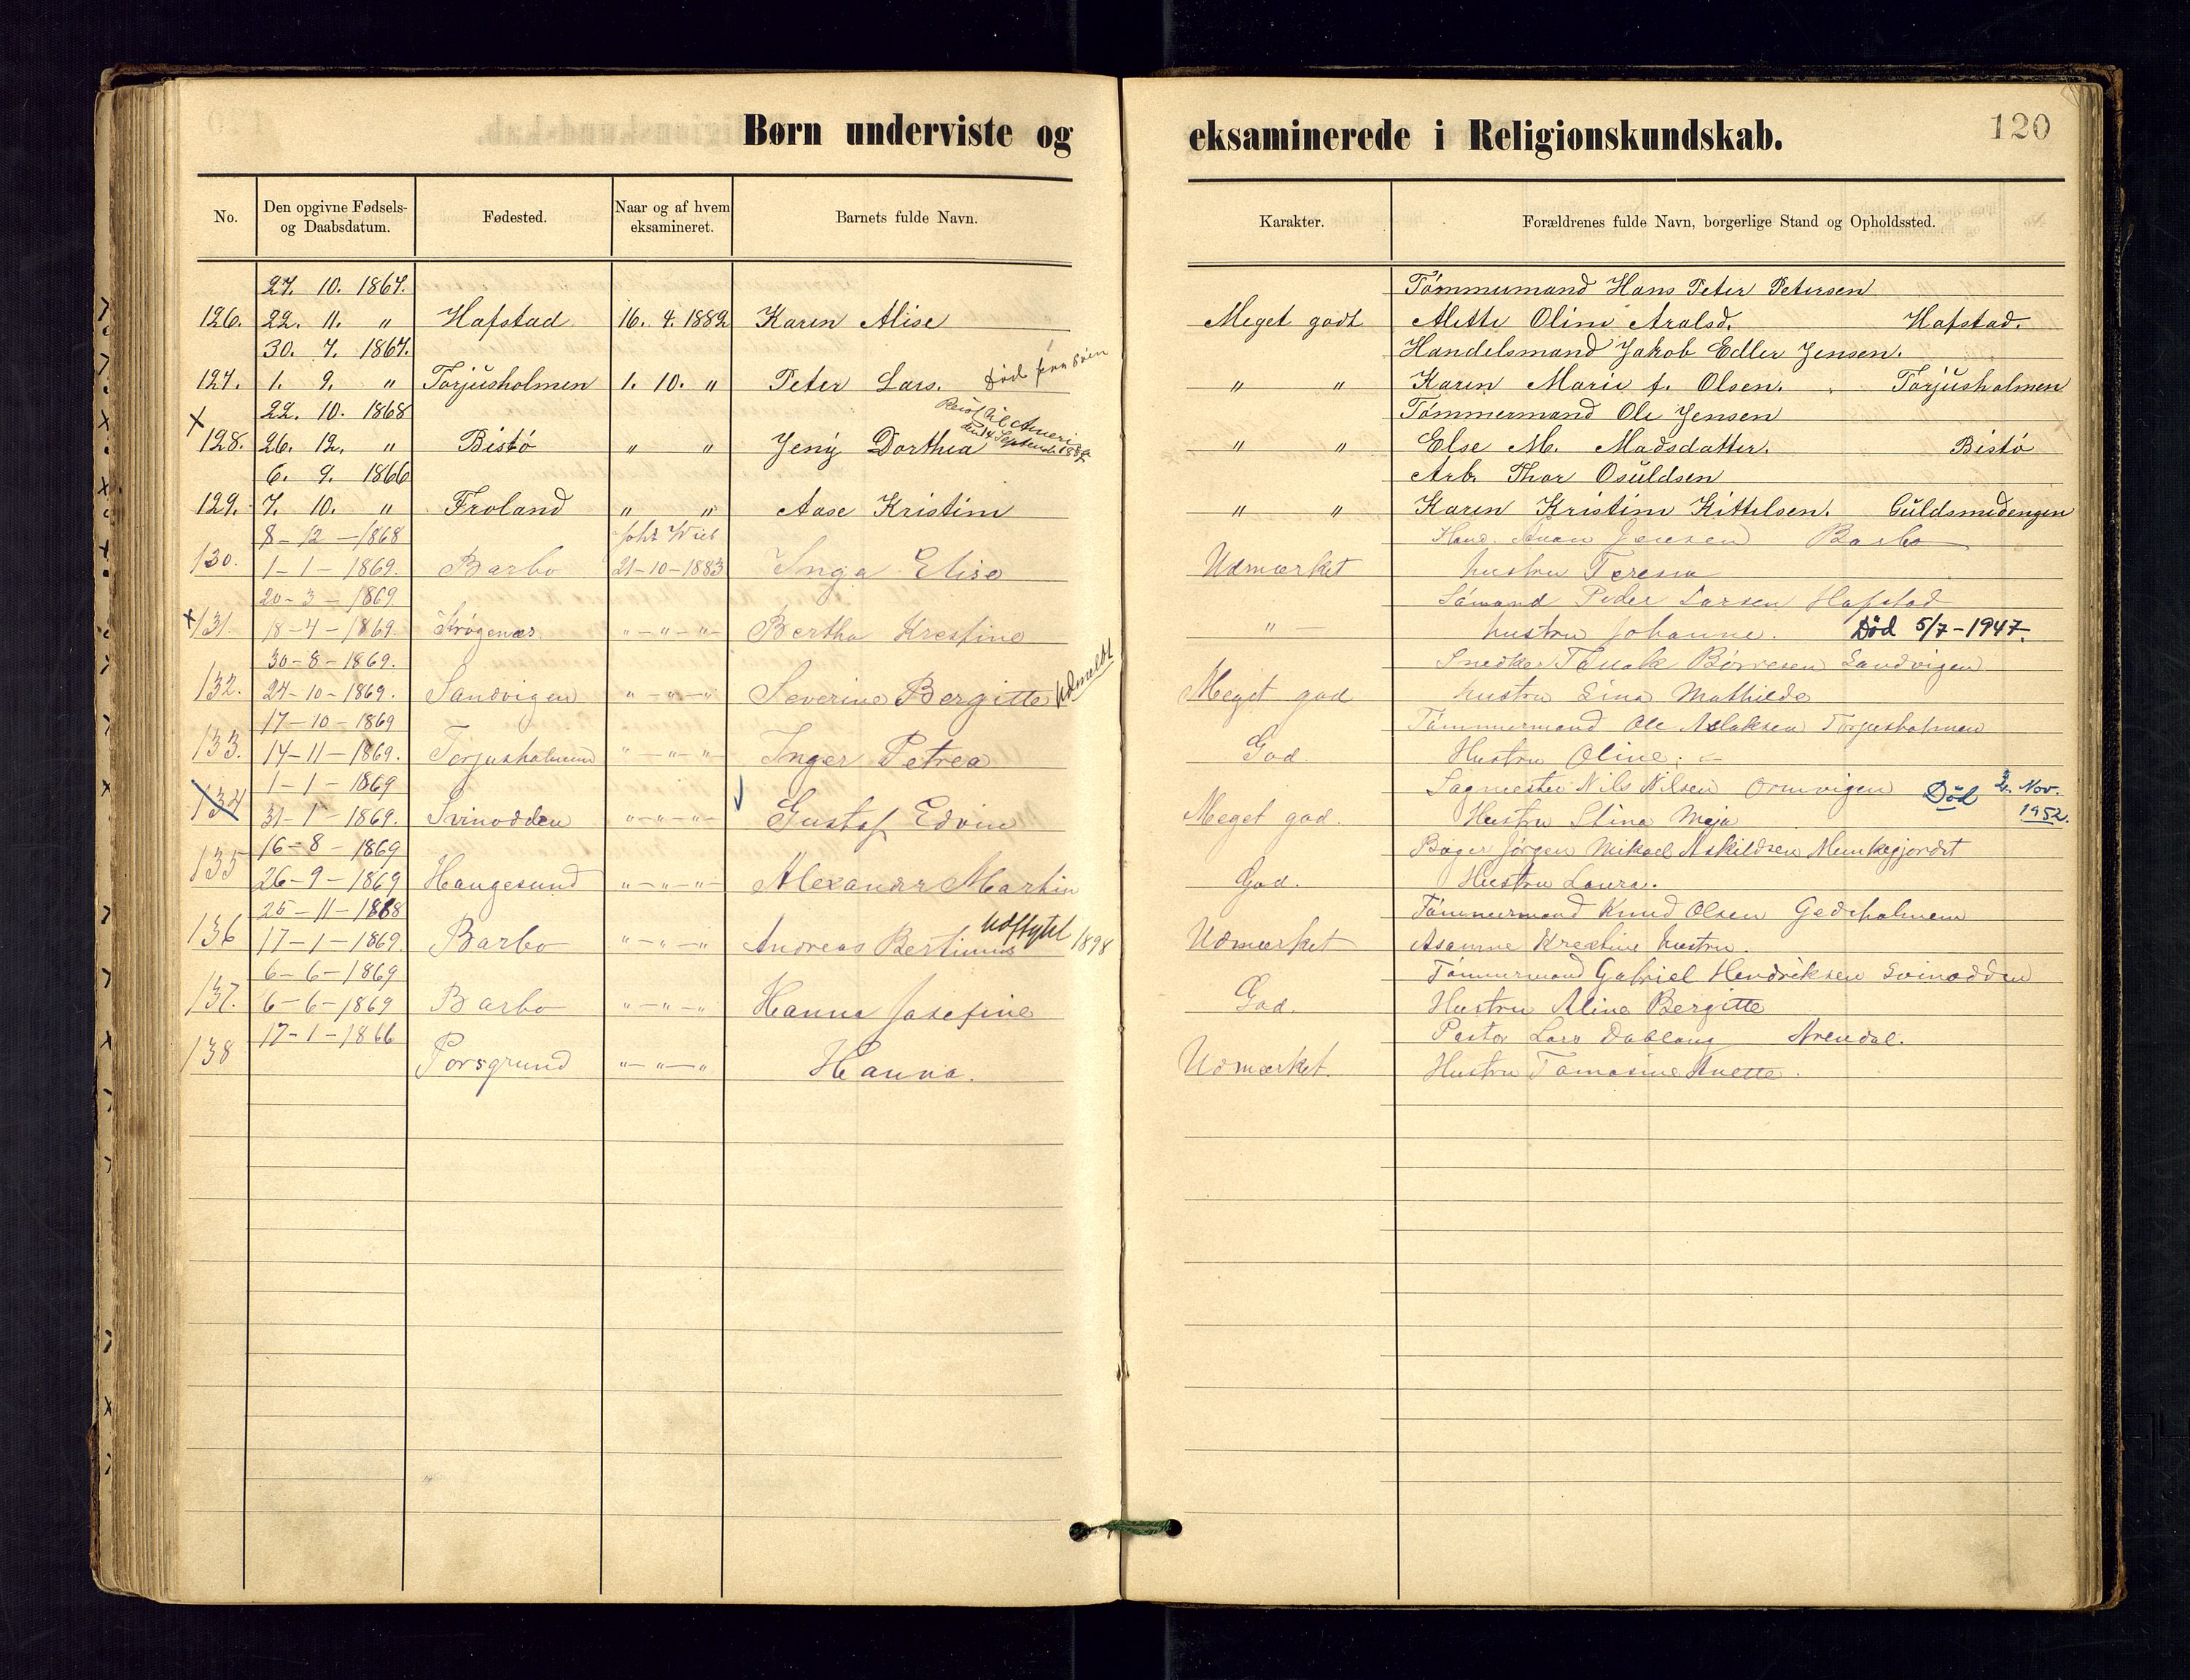 120
Børn underviste og eksaminerede i Religionskundskab.
No. | Den opgivne Fødsels- og Daabsdatum. | Fødested. | Naar og af hvem eksamineret. | Barnets fulde Navn. | Karakter. | Forældrenes fulde Navn, borgerlige Stand og Opholdssted.
27. 10. 1867. | Tömmermand Hans Peter Petersen
126. | 22. 11. " | Hafstad | 16. 4. 1882 | Karen Alise | Meget godt | Alette Oline Aralsd. Hafstad.
30. 7. 1867. | Handelsmand Jakob Edler Jensen.
127. | 1. 9. " | Torjusholmen | 1. 10. " | Peter Lars. Död | " " | Karen Marie f. Olsen. Torjusholmen
22. 10. 1868 | Reist til Ameri | Tömmermand Ole Jensen
x 128. | 26. 12. " | Bistö | " " | Jeny Dorthea | " " | Else M. Madsdatter. Bistö
6. 9. 1866 | Arb. Thor Osuldsen
129. | 7. 10. " | Froland | " " | Aase Kristine | " " | Karen Kristine Kittelsen. Guldsmedengen
8-12-1868 | Joh. | Jensen Barbo
130. | 1-1-1869. | Barbo | 21-10-1883 | Inga Elise | Udmærket | hustru Teresia
20-3-1869. | Sömand Peder Larsen Hafstad
x 131. | 18-4-1869. | Krögenæs | "-"-" | Bertha Krestine | " - | hustru Johanne. Död 5/7-1947.
30-8-1869. | Snedker Börresen Sandvigen
132. | 24-10-1869. | Sandvigen | "-"-" | Severine Bergitte Udmeldt | Meget god | hustru Lina Mathilde
17-10-1869 | Tömmermand Ole Aslaksen Torjusholmen
133. | 14-11-1869. | Torjusholmen | "-"-" | Inger Petrea | God | Hustru Oline.
1-1-1869 | Sagmester Nils Nilsen Ormvigen Död 2. Nov. 1952.
134 | 31-1-1869. | Svinodden | "-"-" | Gustaf Edvin | Meget god. | Hustru Stina Maja
16-8-1869 | Bager Jörgen Mikael Askildsen Munkegjordet
135 | 26-9-1869 | Haugesund | "-"-" | Alexander Martin | God. | Hustru Laura.
25-11-1868 | Tömmermand Knud Olsen Gedeholmen
136 | 17-1-1869 | Barbo | "-"-" | Andreas Bertinius Udflyttet 1898 | Udmærket | Asanne Krestine hustru.
6-6-1869 | Tömmermand Gabriel Hendriksen Svinodden
137. | 6-6-1869 | Barbo | "-"-" | Hanna Josefine | God. | Hustru Aline Bergitte
17-1-1866 | Pastor Lars Arendal.
138 | Porsgrund | "-"-" | Hanna. | Udmærket. | Hustru Tomasine Anette.